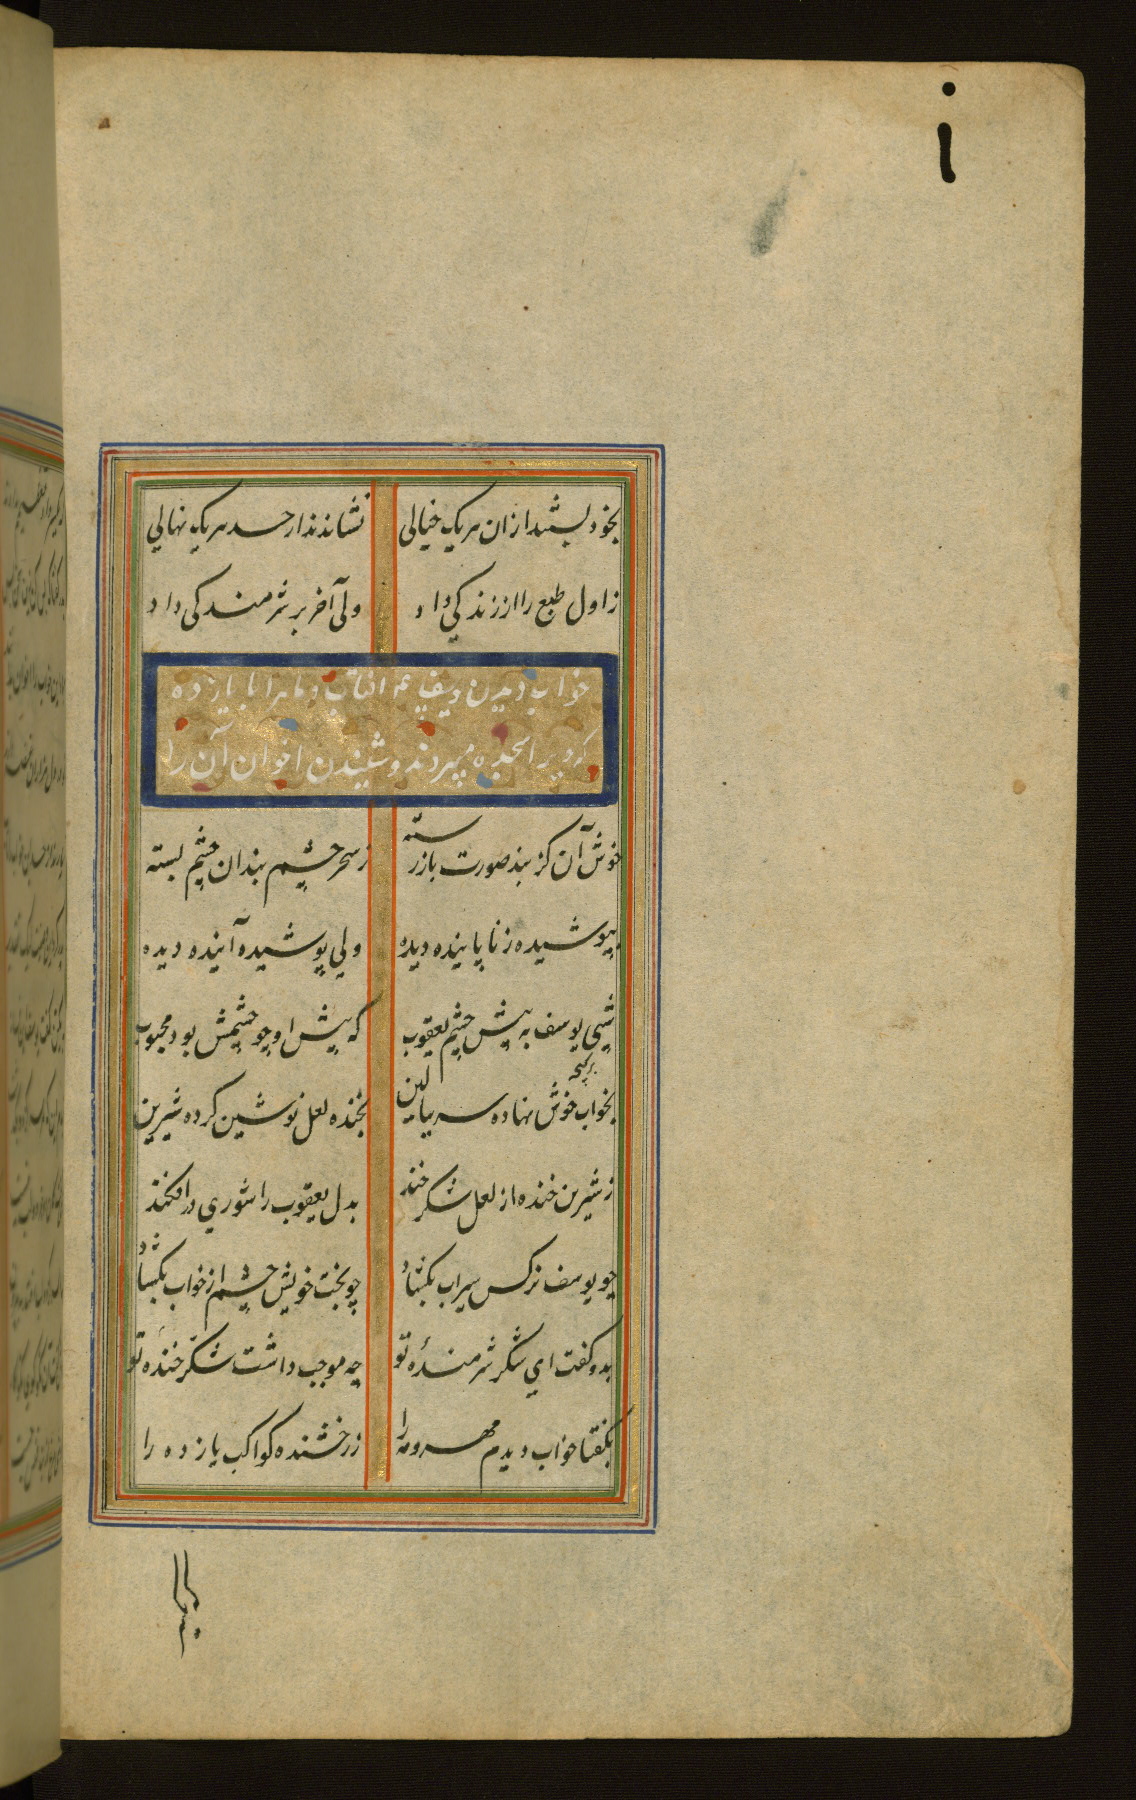 بخود بستند ازان هریک خیالی نشاندند از حسد هریک نهالی
ز اول طبع را از زندکی داد ولی آخر بر شرمندکی داد
خواب دیدن یوسف که افتاب و ماه را با یازده
که ویرا سجده میبردند و شنیدن اخوان آن را
خوش آن کز بند صورت باز رسته ز سحر چشم بندان چشم بسته
بپوشیده ز ناپاینده دیده ولی پوشیده آینده دیده
شبی یوسف به پیش چشم یعقوب که پیش او چو چشمش بود محبوب
بخواب خوش نهاده سر ببالین بخنده لعل نوشین کرده شیرین
ز شیرین خنده از لعل شکر خند بدل یعقوب را شوری درافکند
چو یوسف نرکس سیراب بکشاد چو بخت خویش چشم از خواب بکشاد
بدو کفت ای شکر شرمندهٔ تو چه موجب داشت شکر خندهٔ تو
بکفتا خواب دیدم مهر و مه را ز رخشنده کواکب یازده را